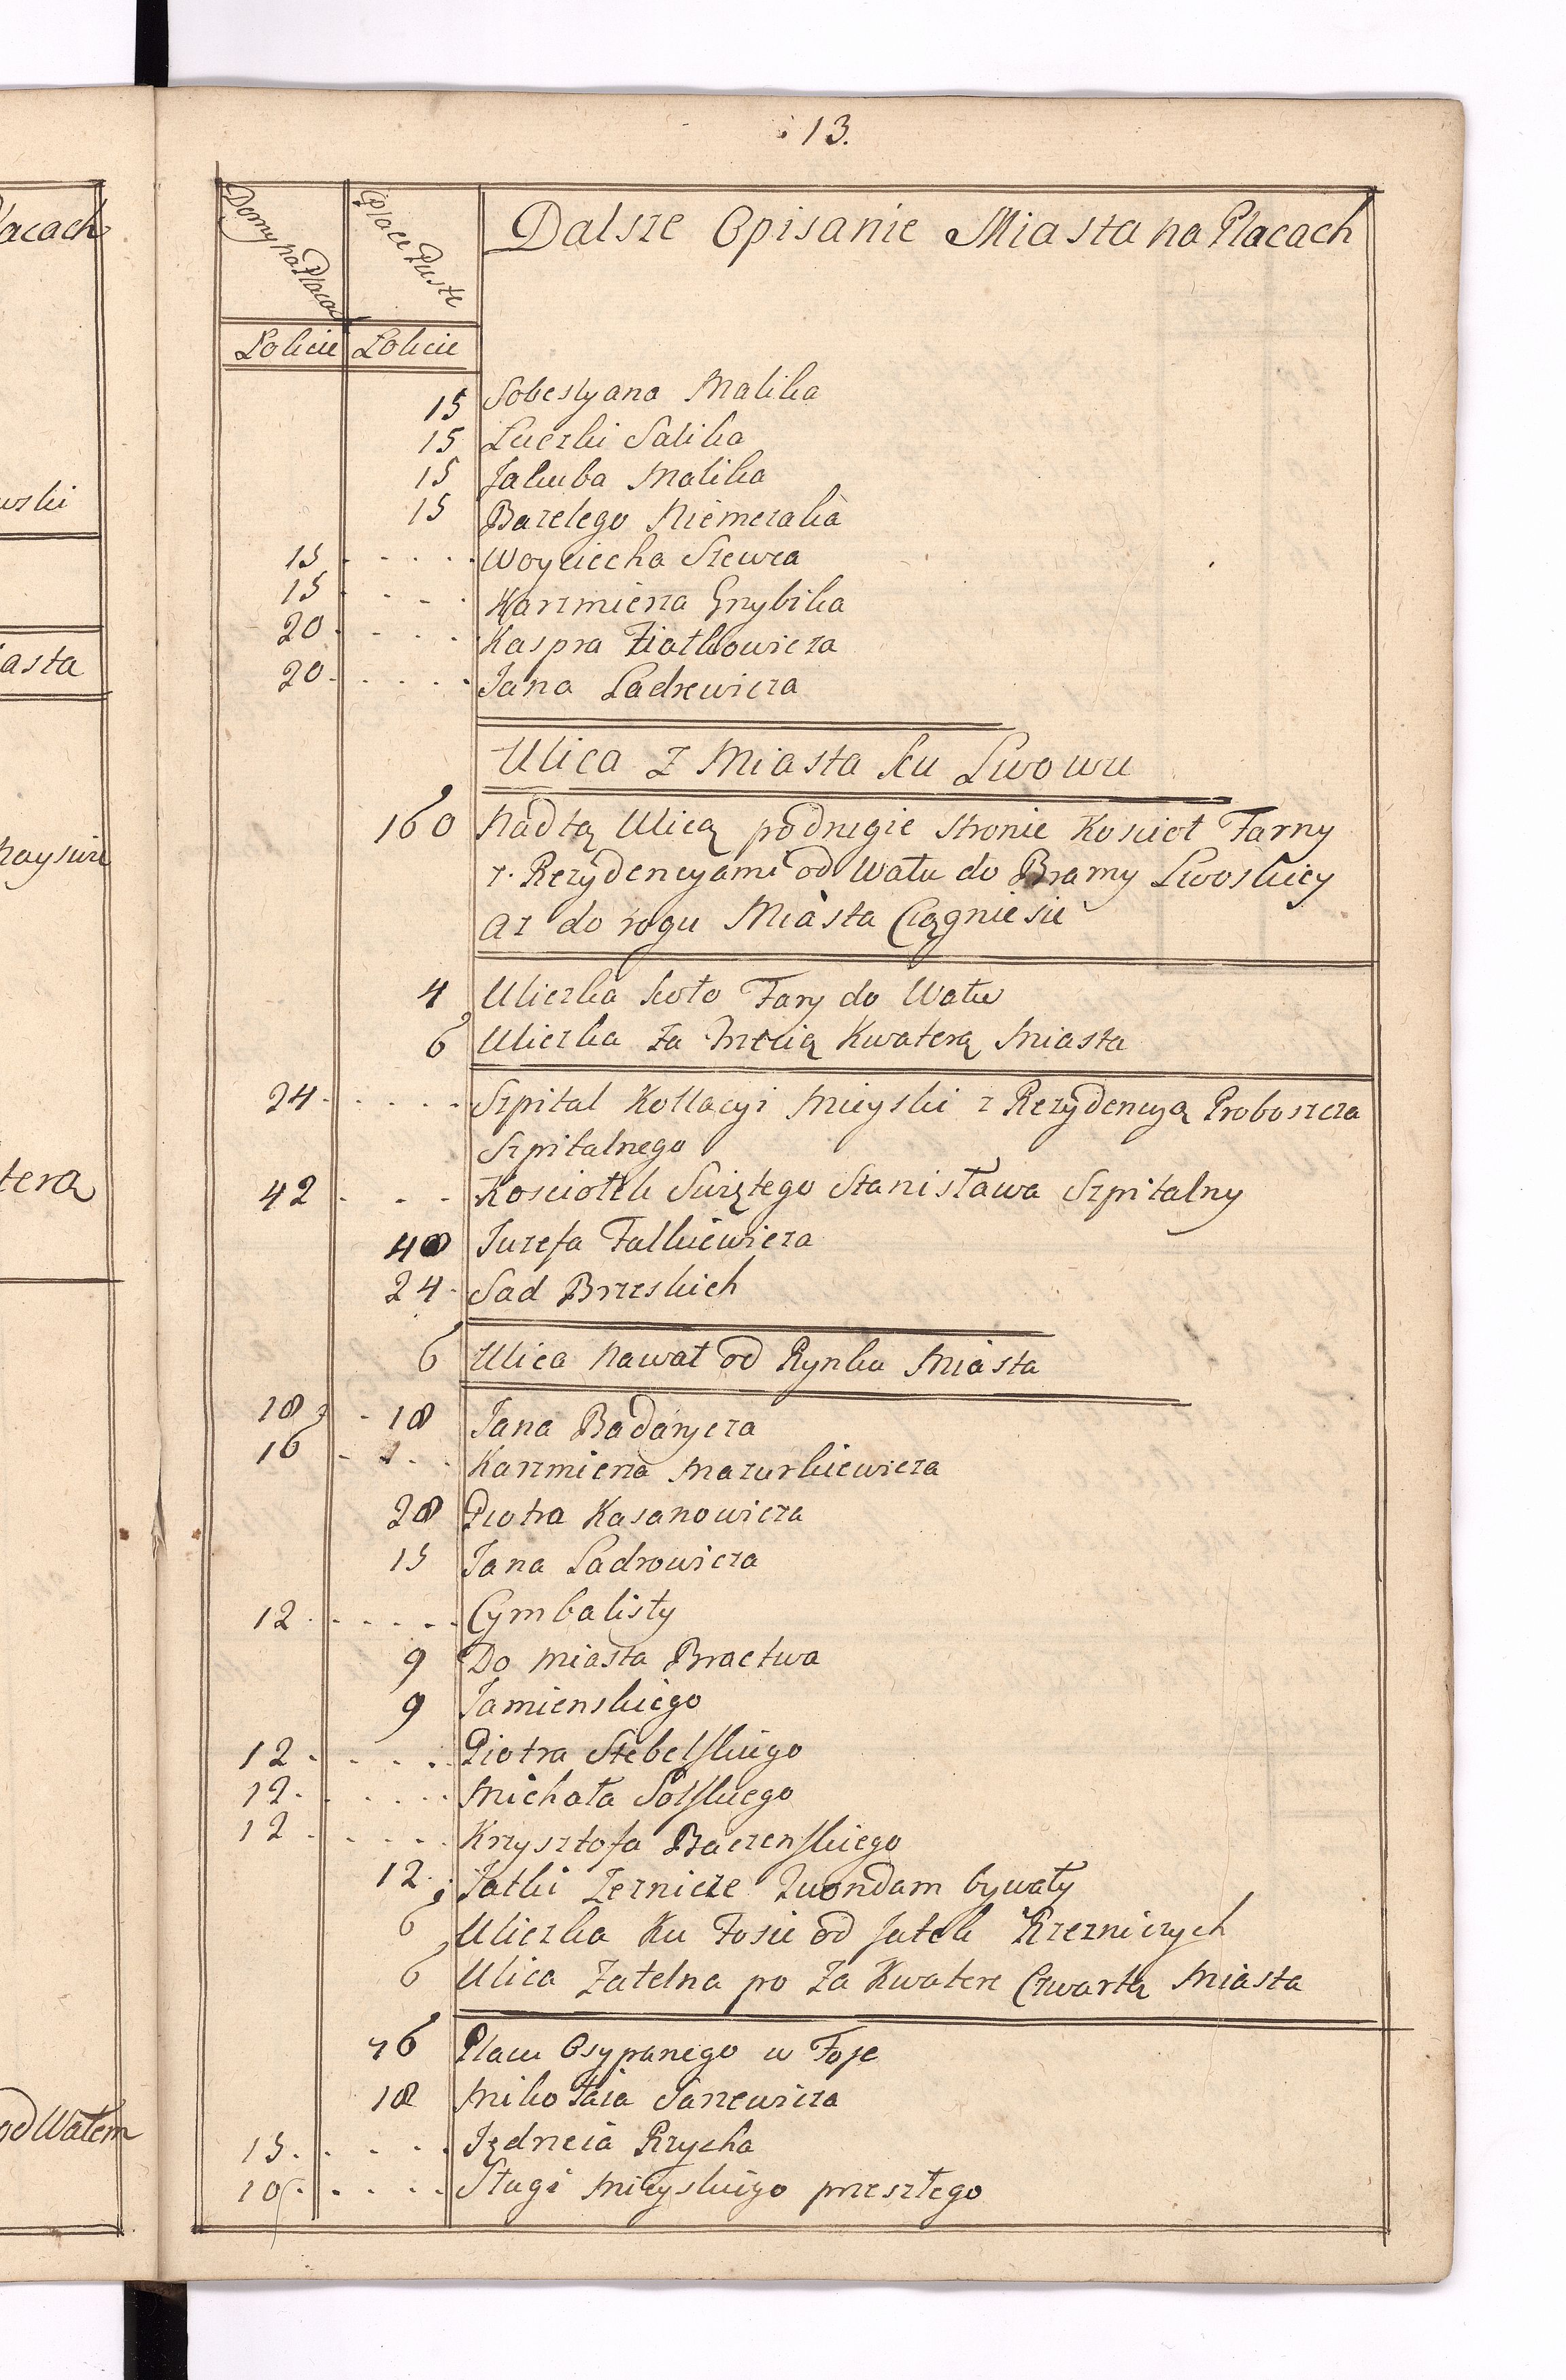 13.
Domy na Placach
Place Puste
Dalsze Opisanie Miasta na Placach
Łokcie Łokcie
15 Sobestyana Malika
15 Łuczki Salika
15 Jakuba Malika
15 Barełego Niemczaka
15 Woyciecha Szewca
15 Kazimierza Grzybika
20 Kaspra Ziatkowicza
20 Jana Ladzewicza
Ulica z Miasta ku Lwowu
160 Nad tą Ulicą podrugie stronie Kosciot Farny
z Rezydencyami od Watu do Bramy Lwoskiey
az do rogu Miasta Ciągnie sie
4 Uliczka koło Fary do Watu
6 Uliczka za trzecią Kwaterą Miasta
24 Szpital Kollacyi Mieyski z Rezydencyą Proboszcza
Szpitalnego
42 Kosciołek Swiętego Stanisława Szpitalny
40 Juzefa Falkiewicza
24 Sad Brzeskich
6 Ulica Nawat od Rynku Miasta
18 18 Jana Badanycza
16 Kazimierza Mazurkiewicza
28 Piotra Kasanowicza
15 Jana Ladrowicza
12 Cymbalisty
9 Do Miasta Bractwa
9 Jamienskiego
12 Piotra Stebelskiego
12 Michała Solskiego
12 Krzysztofa Baczenskiego
12 Jatki Zernicze Quondam bywaty
6 Uliczka Ku Fosie od Jatek Rzezniczych
6 Ulica Zatelna po za Kwatere Czwartą Miasta
76 Placu Osypanego w Fosie
18 Mikołaia Sanewicza
15 Jędrzeia Rzycha
10 Sługi Mieyskiego przeszłego